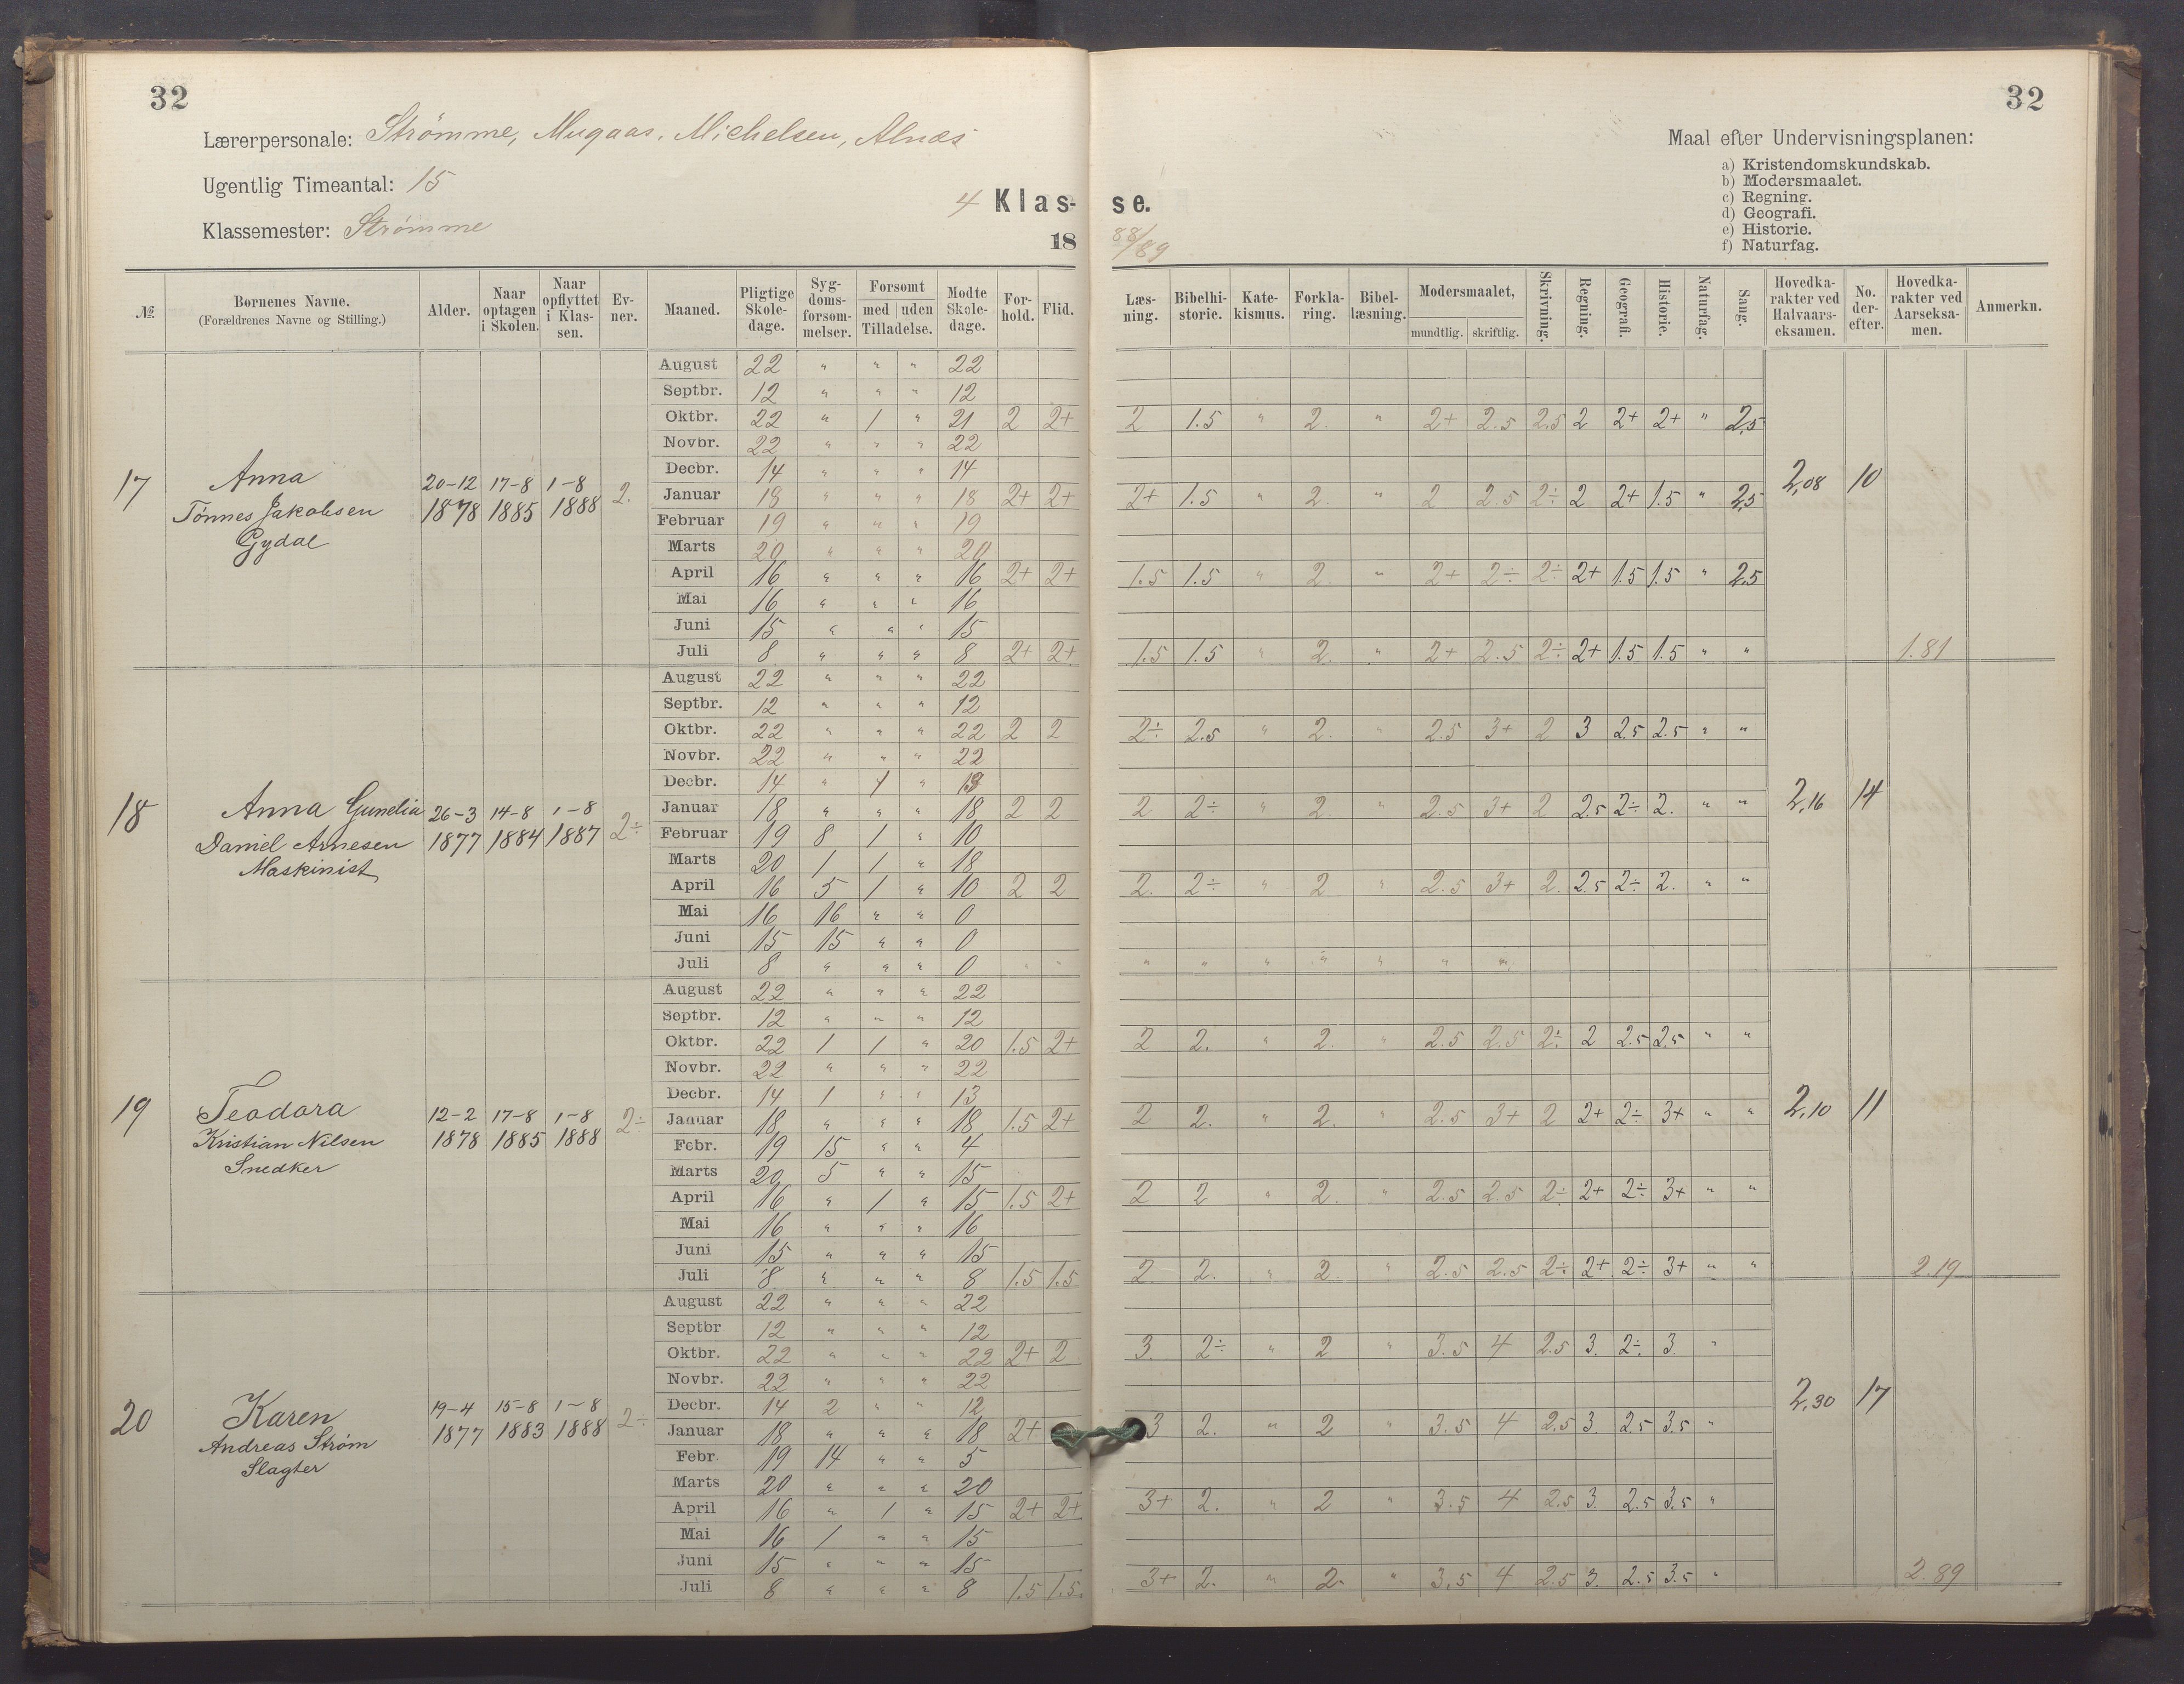 32
Lærerpersonale: Strømme, Mugaas, Michelsen, Alnæs
Ugentlig Timeantal: 15
Klassemester: Strømme
4 Klas-
18
№
Børnenes Navne. (Forældrenes Navne og Stilling.)
Alder.
Naar optagen i Skolen.
Naar opflyttet i Klassen.
Evner.
Maaned.
Pligtige Skoledage.
Sygdomsforsommelser.
Forsomt med uden Tilladelse.
Mødte Skoledage.
Forhold.
Flid.
17
Anna
Tönnes Jakobsen
Gydal
20-12 17-8 1-8
1878 1885 1888 2.
August 22 " " " 22
Septbr. 12 " " " 12
Oktbr. 22 " 1 " 21 2 2+
Novbr. 22 " " " 22
Decbr. 14 " " " 14
Januar 18 " " " 18 2+ 2+
Februar 19 " " " 19
Marts 20 " " " 20
April 16 " " " 16 2+ 2+
Mai 16 " " " 16
Juni 15 " " " 15
Juli 8 " " " 8 2+ 2+
18
Anna Gunelia
Daniel Arnesen
Maskinist
26-3 14-8 1-8
1877 1884 1887 2÷
August 22 " " " 22
Septbr. 12 " " " 12
Oktbr. 22 " " " 22 2 2
Novbr. 22 " " " 22
Decbr. 14 " 1 " 13
Januar 18 " " " 18 2 2
Februar 19 8 1 " 10
Marts 20 1 1 " 18
April 16 5 1 " 10 2 2
Mai 16 16 " " 0
Juni 15 15 " " 0
Juli 8 " " " 0 " "
19
Teodora
Kristian Nilsen
Snedker
12-2 17-8 1-8
1878 1885 1888 2÷
August 22 " " " 22
Septbr. 12 " " " 12
Oktbr. 22 1 1 " 20 1.5 2+
Novbr. 22 " " " 22
Decbr. 14 1 " " 13
Januar 18 " " " 18 1.5 2+
Febr. 19 15 " " 4
Marts 20 5 " " 15
April 16 " 1 " 15 1.5 2+
Mai 16 " " " 16
Juni 15 " " " 15
Juli 8 " " " 8 1.5 1.5
20
Karen
Andreas Strøm
Slagter
19-4 15-8 1-8
1877 1883 1888 2÷
August 22 " " " 22
Septbr 12 " " " 12
Oktbr. 22 " " " 22 2+ 2
Novbr. 22 " " " 22
Decbr. 14 2 " " 12
Januar 18 " " " 18 2+
Febr. 19 14 " " 5
Marts 20 " " " 20
April 16 " 1 " 15 2+ 2+
Mai 16 1 " " 15
Juni 15 " " " 15
Juli 8 " " " 8 1.5 1.5
32
Maal efter Undervisningsplanen:
a) Kristendomskundskab.
b) Modersmaalet.
c) Regning.
d) Geografi.
e) Historie.
f) Naturfag.
se.
88/89
Læsning.
Bibelhistorie.
Katekismus.
Forklaring.
Bibellæsning.
Modersmaalet, mundtlig. skriftlig.
Skrivning.
Regning.
Geografi.
Historie.
Naturfag.
Sang.
Hovedkarakter ved Halvaarseksamen.
No. derefter.
Hovedkarakter ved Aarseksamen.
Anmerkn.
2 1.5 " 2. " 2+ 2.5 2.5 2 2+ 2+ " 2,5
2,08 10
2+ 1.5 " 2. " 2 2.5 2÷ 2 2+ 1.5 " 2,5
1.5 1.5 " 2. " 2+ 2÷ 2÷ 2+ 1.5 1.5 " 2,5
1.5 1.5 " 2. " 2+ 2.5 2÷ 2+ 1.5 1.5 " " 1.81
2÷ 2.5 " 2. " 2.5 3+ 2 3 2.5 2.5 " "
2,16 14
2 2÷ " 2. " 2.5 3+ 2 2.5 2÷ 2. " "
2. 2÷ " 2 " 2.5 3+ 2. 2.5 2÷ 2. " "
" " " " " " "
2 2. " 2. " 2.5 2.5 2÷ 2 2.5 2.5 " "
2,10 11
2 2. " 2. " 2.5 3+ 2 2+ 2÷ 3+ " "
2 2 " 2. " 2.5 2.5 2÷ 2+ 2÷ 3+ " "
2 2. " 2. " 2.5 2.5 2÷ 2+ 2÷ 3+ " " 2.19
3. 2÷ " 2 " 3.5 4 2.5 3. 2÷ 3 "
2,30 17
3 2. " 2 " 3.5 4 2.5 3. 2.5 3.5 "
3+ 2. " 2 " 3.5 4 2.5 3. 2.5 3.5 "
3+ 2. " 2. " 3.5 4 2.5 3. 2.5 3.5 " 2.89